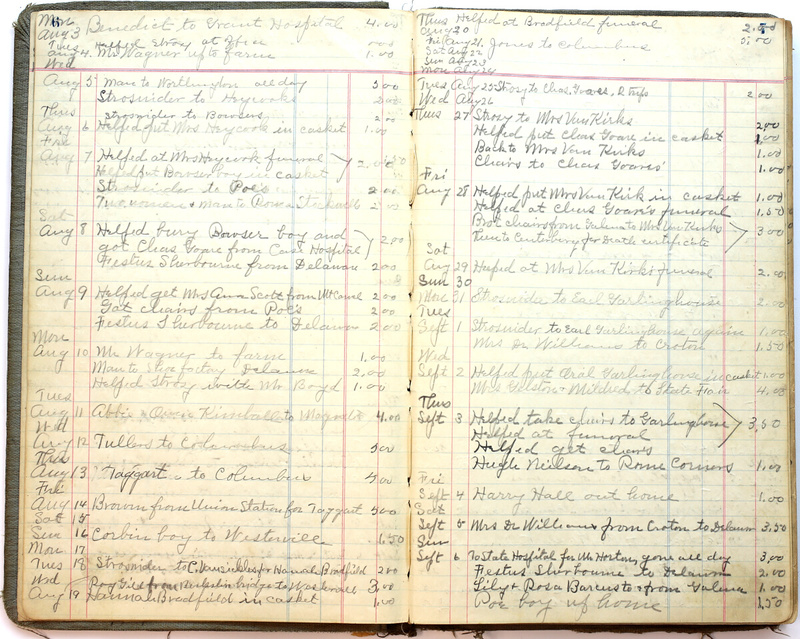 Mon
Aug 3 Benedict to Grant Hospital 4.00
Tues Helped Strosy at
Aug 4 Mrs Wagner up to farm 1.00
Wed
Aug 5 Man to Worthington all day 5.00
Strosnider to Haycooks 2.00
Thus Strosnider to Bowsers 2.00
Aug 6 Helped put Mrs Haycook in casket 1.00
Fri
Aug 7 Helped at Mrs Haycook funeral
Helped put Bowser boy in casket 2.00
Strosnider to Poe's 2.00
Two women & man to
Sat
Aug 8 Helped bury Bowser boy and
got Chas Goare from Cast Hospital 2.00
Festus Sherbourne from Delawan 2.00
Sun
Aug 9 Helped get Mrs Anna Scott from Mt Carmel 2.00
Got chairs from Poe's 2.00
Festus Sherbourne to Delawan 2.00
Mon
Aug 10 Mr Wagner to farm 1.00
Man to factory Delawan 2.00
Helped Strosy with Mr Boyd 1.00
Tues
Aug 11 Abbie & Kimball to 4.00
Wed
Aug 12 Tullers to Columbus 5.00
Thus
Aug 13 Taggart to Columbus 4.00
Fri
Aug 14 Brown from Union Station for Taggart 5.00
Sat 15
Sun 16 Corbin boy to Westerville 1.50
Mon 17
Tues 18 Strosnider to C. for Hannah Bradfield 2.00
Wed Roy Gill from bridge to 3.00
Aug 19 Hannah Bradfield in casket 1.00
Thus Helped at Bradfield funeral 2.50
Aug 20
Fri Aug 21. Jones to Columbus 5.00
Sat Aug 22
Sun Aug 23
Mon Aug 24
Tues Aug 25 Strosy to Chas. Goares, 2 trips 2.00
Wed Aug 26
Thus 27 Strosy to Mrs Van Kirks 2.00
Helped put Chas Goare in casket 1.00
Back to Mrs Van Kirks 1.00
Chairs to Chas Goares' 1.00
Fri
Aug 28 Helped put Mrs Van Kirk in casket 1.00
Helped at Chas Goare's funeral 1.50
Brot chairs from Galena to Mrs Van Kirks
Went to Centerburg for Death certificate 3.00
Sat
Aug 29 Helped at Mrs Van Kirks funeral 2.00
Sun 30
Mon 31 Strosnider to Earl Garlinghouse 2.00
Tues
Sept 1 Strosnider to Earl Garlinghouse again 1.00
Mrs Dr Williams to Croton 1.50
Wed
Sept 2 Helped put Garlinghouse in casket 1.00
Mrs & Mildred to State Fair 4.00
Thus
Sept 3 Helped take chairs to Garlinghouse
Helped at funeral 3.50
Helped get chairs
Hugh Neilson to Rome Corners 1.00
Fri
Sept 4 Harry Hall out home 1.00
Sat
Sept 5 Mrs Dr Williams from Croton to Delawan 3.50
Sun
Sept 6 To State Hospital for Mr Horton, gone all day 3.00
Festus Sherbourne to Delawan 2.00
Lily & Rosa Barcus to & from Galena 1.00
Poe boy up home 1.50